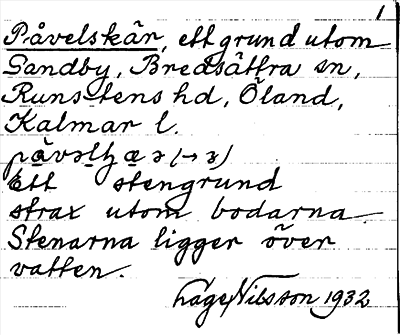 1
Påvelskär, ett grund utom
Sandby, Bredsättra sn,
Runstens hd, Öland,
Kalmar l.
Ett stengrund
strax utom bodarna.
Stenarna ligger över
vatten.
Låge Nilsson 1932